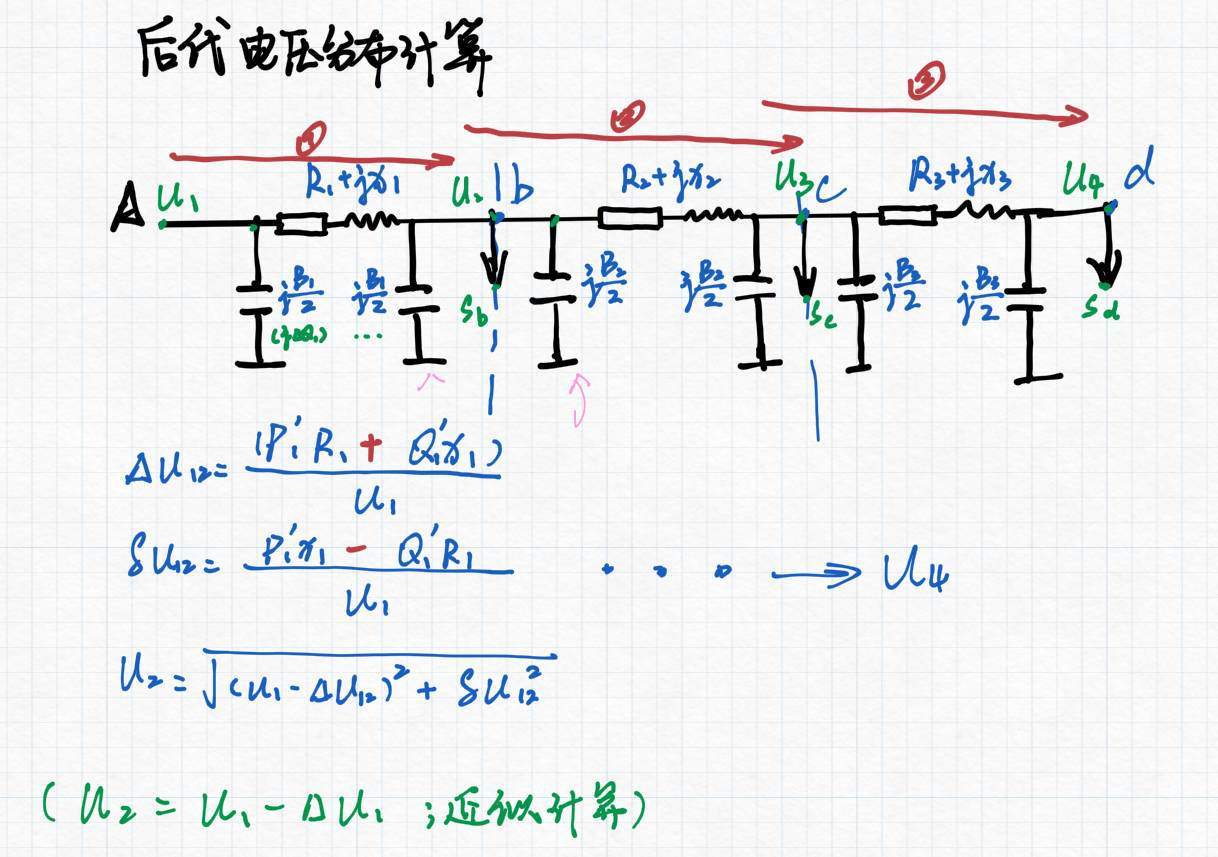 后代电压分布计算
① ② ③
A U₁ R₁+jx₁ U₂ b R₂+jx₂ U₃ c R₃+jx₃ U₄ d
j B₁/2 j B₁/2 S_b j B₂/2 j B₂/2 S_c j B₃/2 j B₃/2 S_d
(jΔQ₁) ...
ΔU₁₂= (P₁'R₁ + Q₁'x₁) / U₁
δU₁₂= P₁'x₁ - Q₁'R₁ / U₁ · · · → U₄
U₂=√(U₁-ΔU₁₂)²+ δU₁₂²
(U₂ = U₁-ΔU₁ ;近似计算)